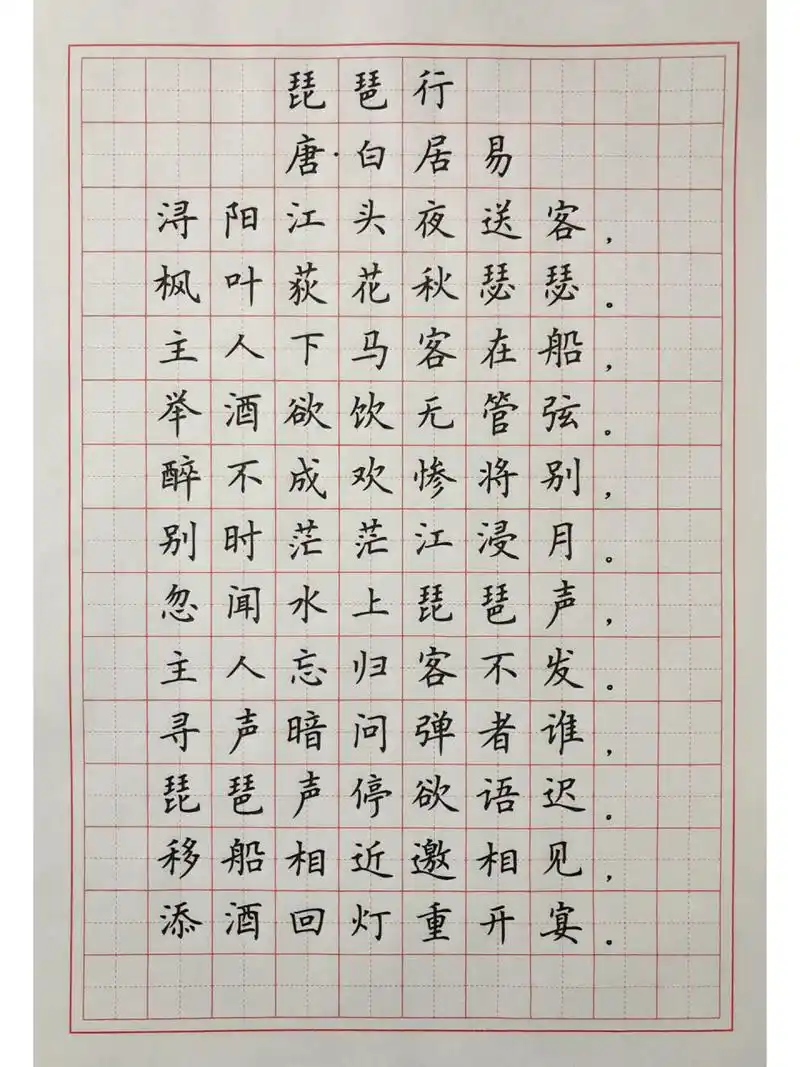 琵琶行
唐·白居易
浔阳江头夜送客，
枫叶荻花秋瑟瑟。
主人下马客在船，
举酒欲饮无管弦。
醉不成欢惨将别，
别时茫茫江浸月。
忽闻水上琵琶声，
主人忘归客不发。
寻声暗问弹者谁，
琵琶声停欲语迟。
移船相近邀相见，
添酒回灯重开宴。